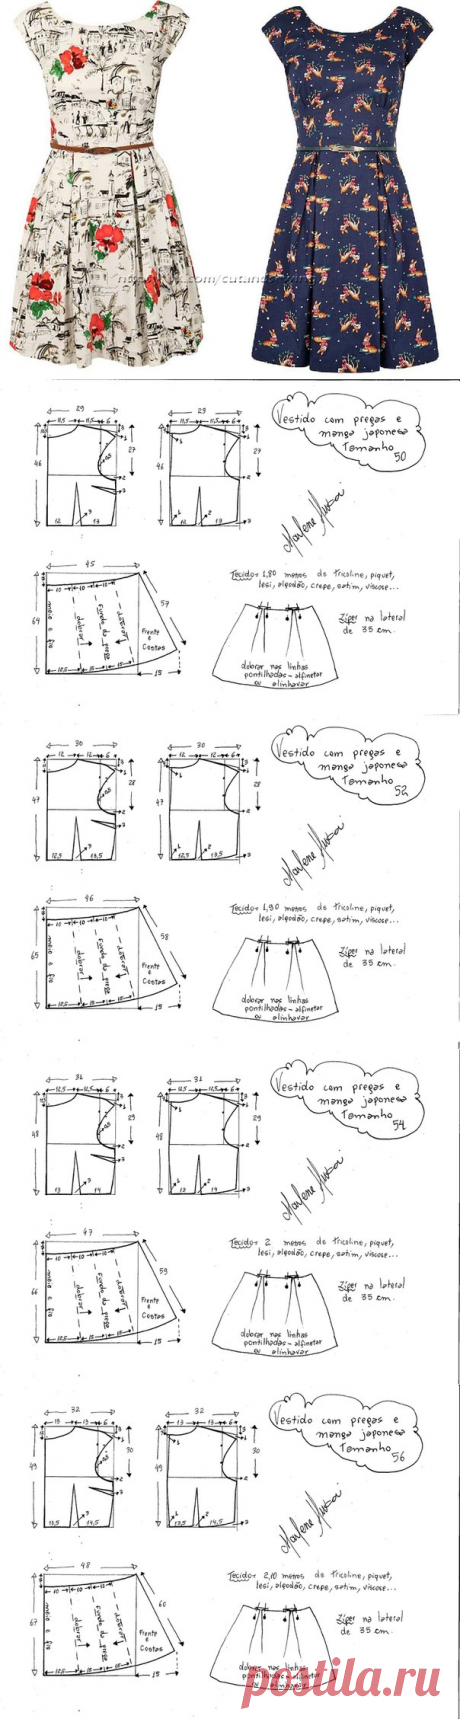 Vestido com pregas e
manga japonesa
Tamanho
50
29
11,5 11,5 6
46
27
12 13
29
11,5 11,5 6
46
27
12 13
Marlene Mukai
45
10 10 15
64
57
meio e fio
dobrar
Fundo da prega
dobrar
Frente
e
Costas
12,5 10 15
15
Tecido: 1,80 metros de tricoline, piquet,
lesi, algodão, crepe, satim, viscose...
Ziper na lateral
de 35 cm.
dobrar nas linhas
pontilhadas - alfinetar
ou alinhavar
Vestido com pregas e
manga japonesa
Tamanho
52
30
12 12 6
47
28
12,5 13,5
30
12 12 6
47
28
12,5 13,5
Marlene Mukai
46
10 10 15
65
58
meio e fio
dobrar
Fundo da prega
dobrar
Frente
e
Costas
12,5 10 15
15
Tecido: 1,90 metros de tricoline, piquet,
lesi, algodão, crepe, satim, viscose...
Ziper na lateral
de 35 cm.
dobrar nas linhas
pontilhadas - alfinetar
ou alinhavar
Vestido com pregas e
manga japonesa
Tamanho
54
31
12,5 12,5 6
48
29
13 14
31
12,5 12,5 6
48
29
13 14
Marlene Mukai
47
10 10 15
66
59
meio e fio
dobrar
Fundo da prega
dobrar
Frente
e
Costas
12,5 10 15
15
Tecido: 2 metros de tricoline, piquet,
lesi, algodão, crepe, satim, viscose...
Ziper na lateral
de 35 cm.
dobrar nas linhas
pontilhadas - alfinetar
ou alinhavar
Vestido com pregas e
manga japonesa
Tamanho
56
32
13 13 6
49
30
13,5 14,5
32
13 13 6
49
30
13,5 14,5
Marlene Mukai
48
10 10 15
67
60
meio e fio
dobrar
Fundo da prega
dobrar
Frente
e
Costas
12,5 10 15
15
Tecido: 2,10 metros de tricoline, piquet,
lesi, algodão, crepe, satim, viscose...
Ziper na lateral
de 35 cm.
dobrar nas linhas
pontilhadas - alfinetar
ou alinhavar
postila.ru